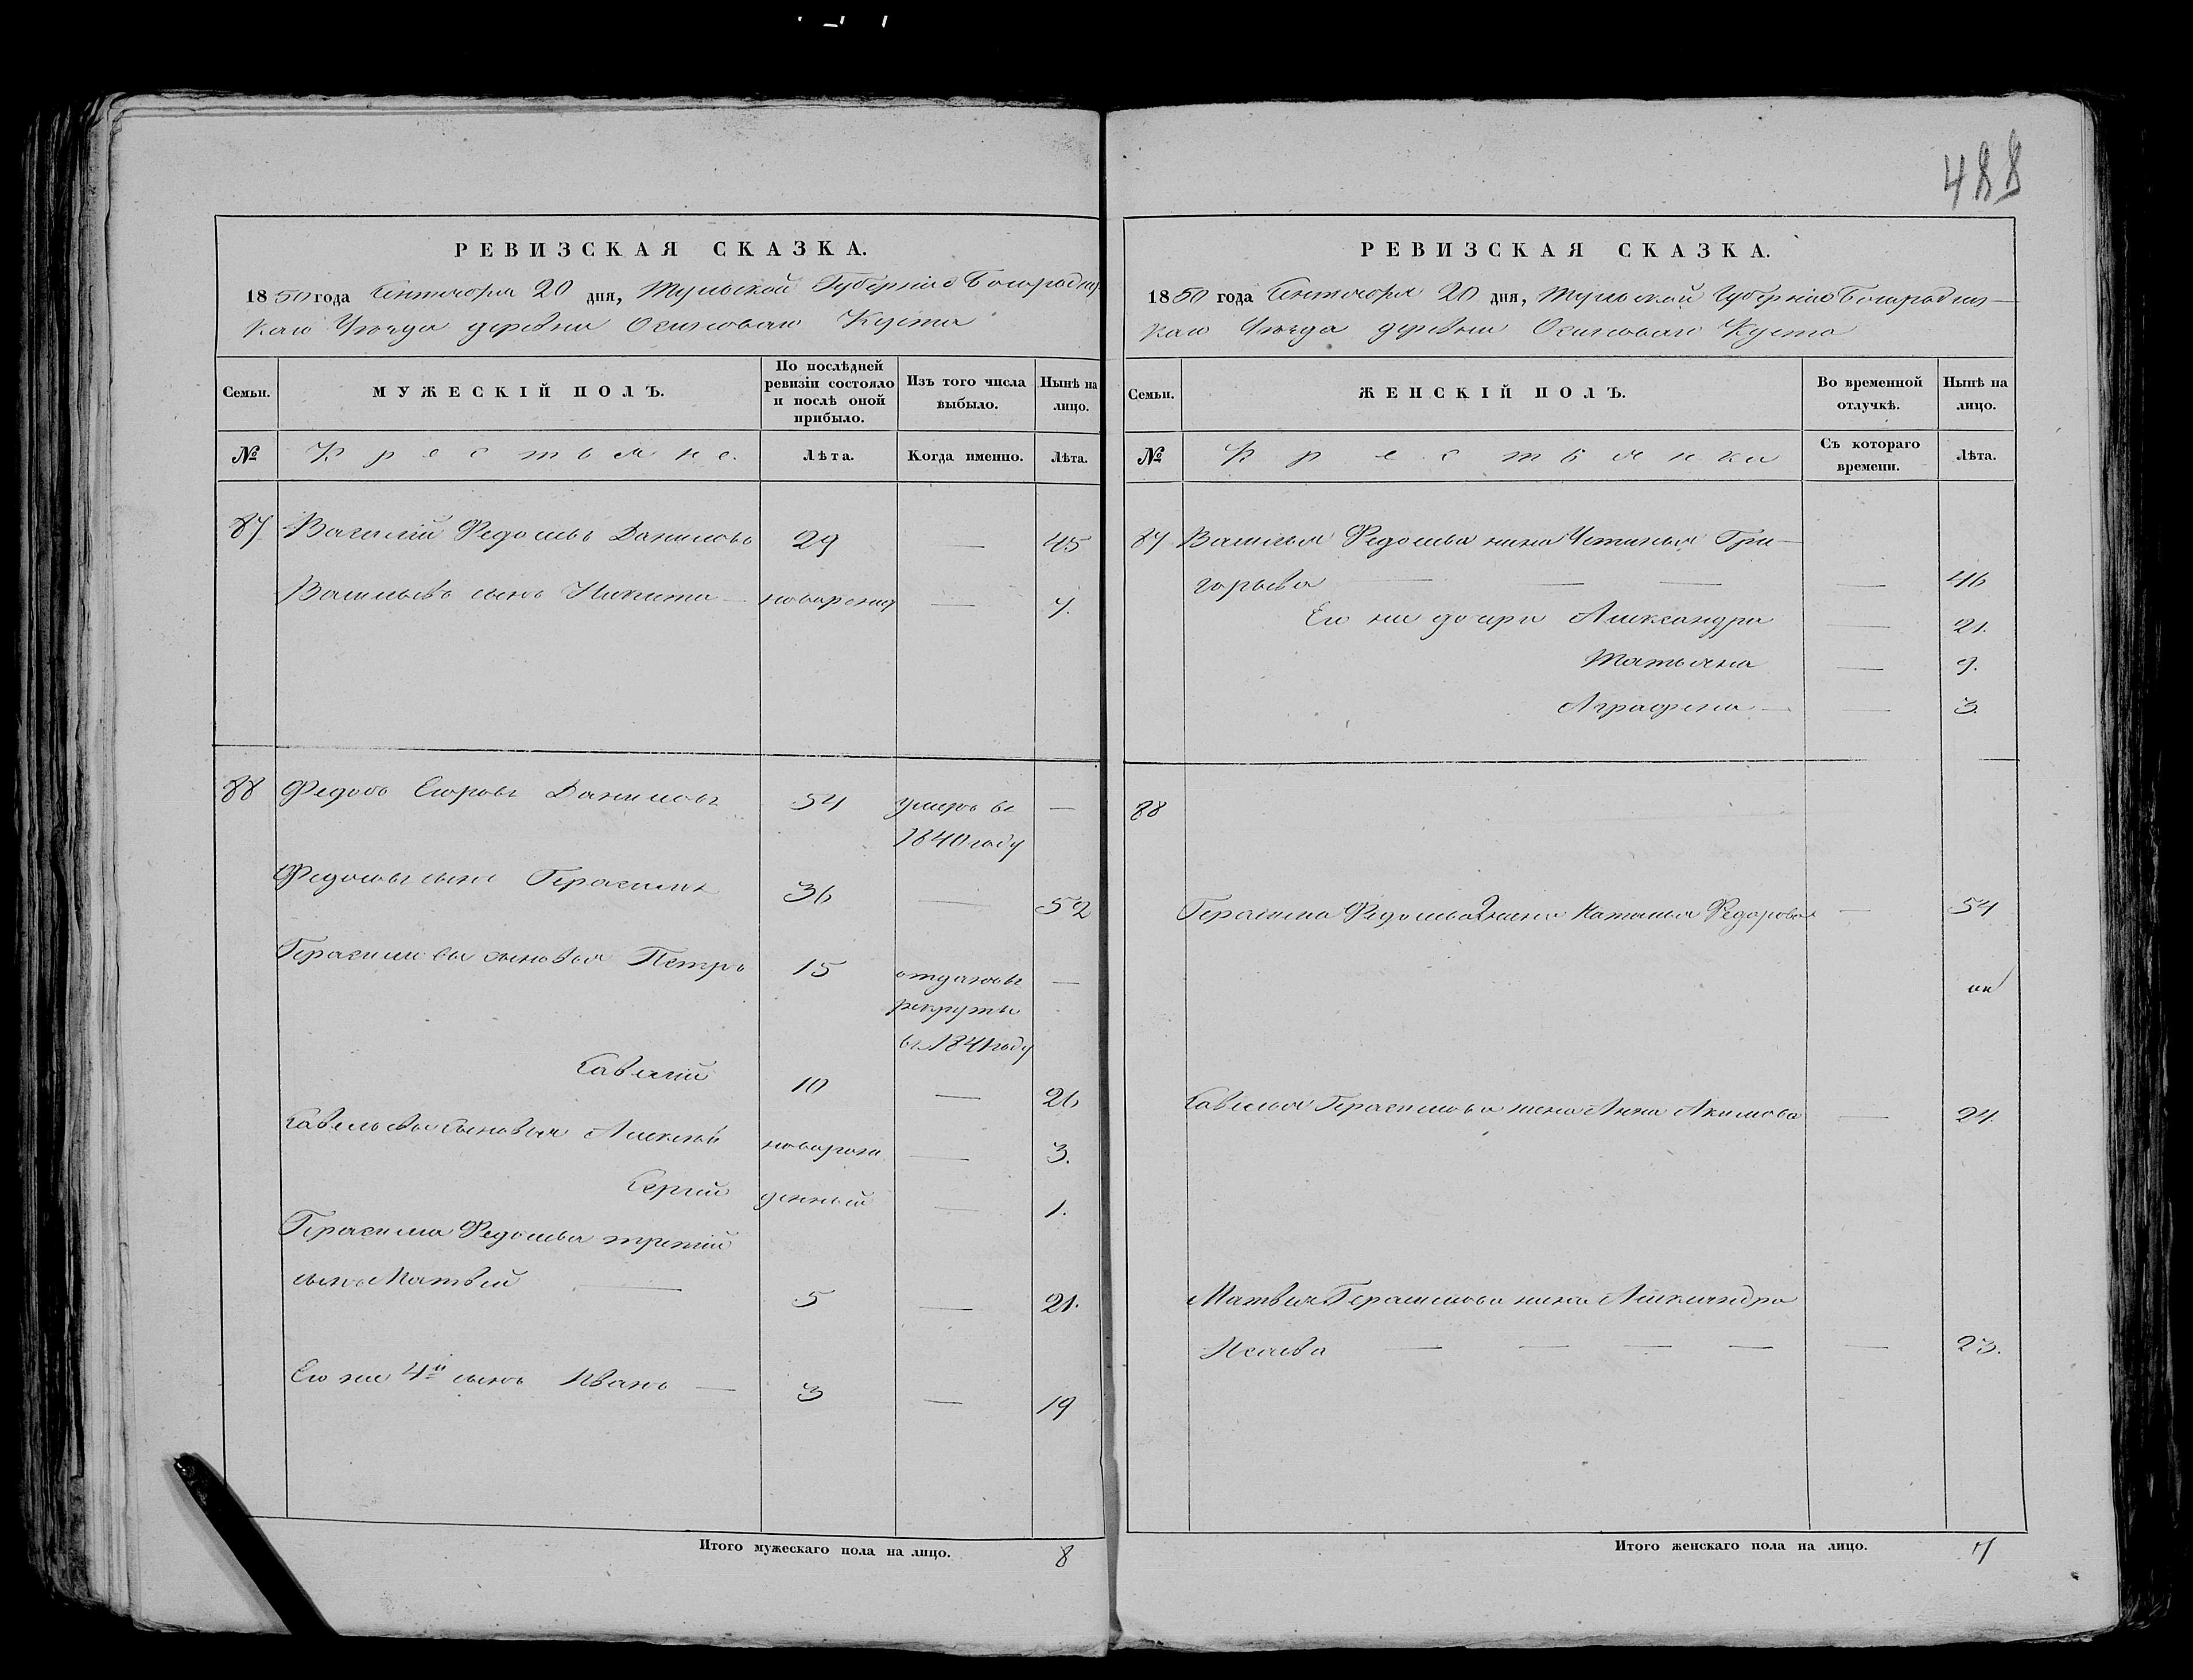 488
РЕВИЗСКАЯ СКАЗКА.
1850 года Сентября 20 дня, Тульской Губернiи Богородиц
каго Уѣзда деревни Осиноваго Куста
Семьи. МУЖЕСКІЙ ПОЛЪ. По послѣдней ревизіи состояло и послѣ оной прибыло. Изъ того числа выбыло. Нынѣ на лицо.
№ Крестьяне. Лѣта. Когда именно. Лѣта.
87 Василій Федотовъ Даниловъ 29 — 45
Васильевъ сынъ Никита — новорожд — 7.
88 Федотъ Егоровъ Даниловъ 54 умеръ въ —
1840 году
Федотовъ сынъ Герасимъ 36 — 52
Герасимовы сыновья Петръ 15 отданъ въ —
рекруты
въ 1841 году
Савелій 10 — 26
Савельевы сыновья Алексѣй новорож — 3.
Сергій денный — 1.
Герасима Федотова третій
сынъ Матвѣй — 5 — 21.
Его же 4й сынъ Иванъ — 3 — 19
Итого мужескаго пола на лицо. 8
РЕВИЗСКАЯ СКАЗКА.
1850 года Сентября 20 дня, Тульской Губерніи Богородиц—
каго Уѣзда деревни Осиноваго Куста
Семьи. ЖЕНСКІЙ ПОЛЪ. Во временной отлучкѣ. Нынѣ на лицо.
№ Крестьянки Съ котораго времени. Лѣта.
87 Василья Федотова жена Устинья Гри—
горьева — — — — 46
Его же дочери Александра — 21.
Татьяна — 9.
Аграфена — — 3.
88
Герасима Федотова 2 жена Наталья Федорова — 54
Савелья Герасимова жена Анна Акимова — 24.
Матвѣя Герасимова жена Александра
Исаева — — — — — 23.
Итого женскаго пола на лицо. 7